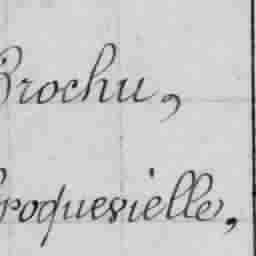 Brochu,
Croquevielle,